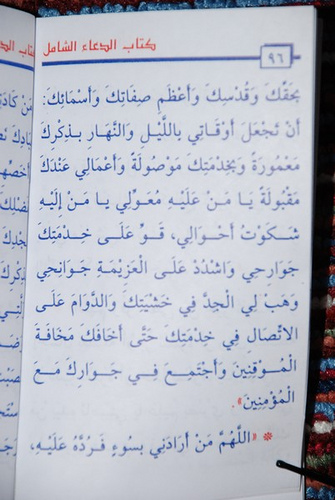 كتاب الدعاء الشامل
٩٦
بِحَقِّكَ وَقُدْسِكَ وَأَعْظَمِ صِفَاتِكَ وَأَسْمَائِكَ:
أَنْ تَجْعَلَ أَوْقَاتِي بِاللَّيْلِ وَالنَّهَارِ بِذِكْرِكَ
مَعْمُورَةً وَبِخِدْمَتِكَ مَوْصُولَةً وَأَعْمَالِي عِنْدَكَ
مَقْبُولَةً يَا مَنْ عَلَيْهِ مُعَوَّلِي يَا مَنْ إِلَيْهِ
شَكَوْتُ أَحْوَالِي، قَوِّ عَلَى خِدْمَتِكَ
جَوَارِحِي وَاشْدُدْ عَلَى الْعَزِيمَةِ جَوَانِحِي
وَهَبْ لِي الْجِدَّ فِي خَشْيَتِكَ وَالدَّوَامَ عَلَى
الاتِّصَالِ فِي خِدْمَتِكَ حَتَّى أَخَافَكَ مَخَافَةَ
الْمُوقِنِينَ وَأَجْتَمِعَ فِي جَوَارِكَ مَعَ
الْمُؤْمِنِينَ».
* «اللَّهُمَّ مَنْ أَرَادَنِي بِسُوءٍ فَرُدَّهُ عَلَيْهِ،